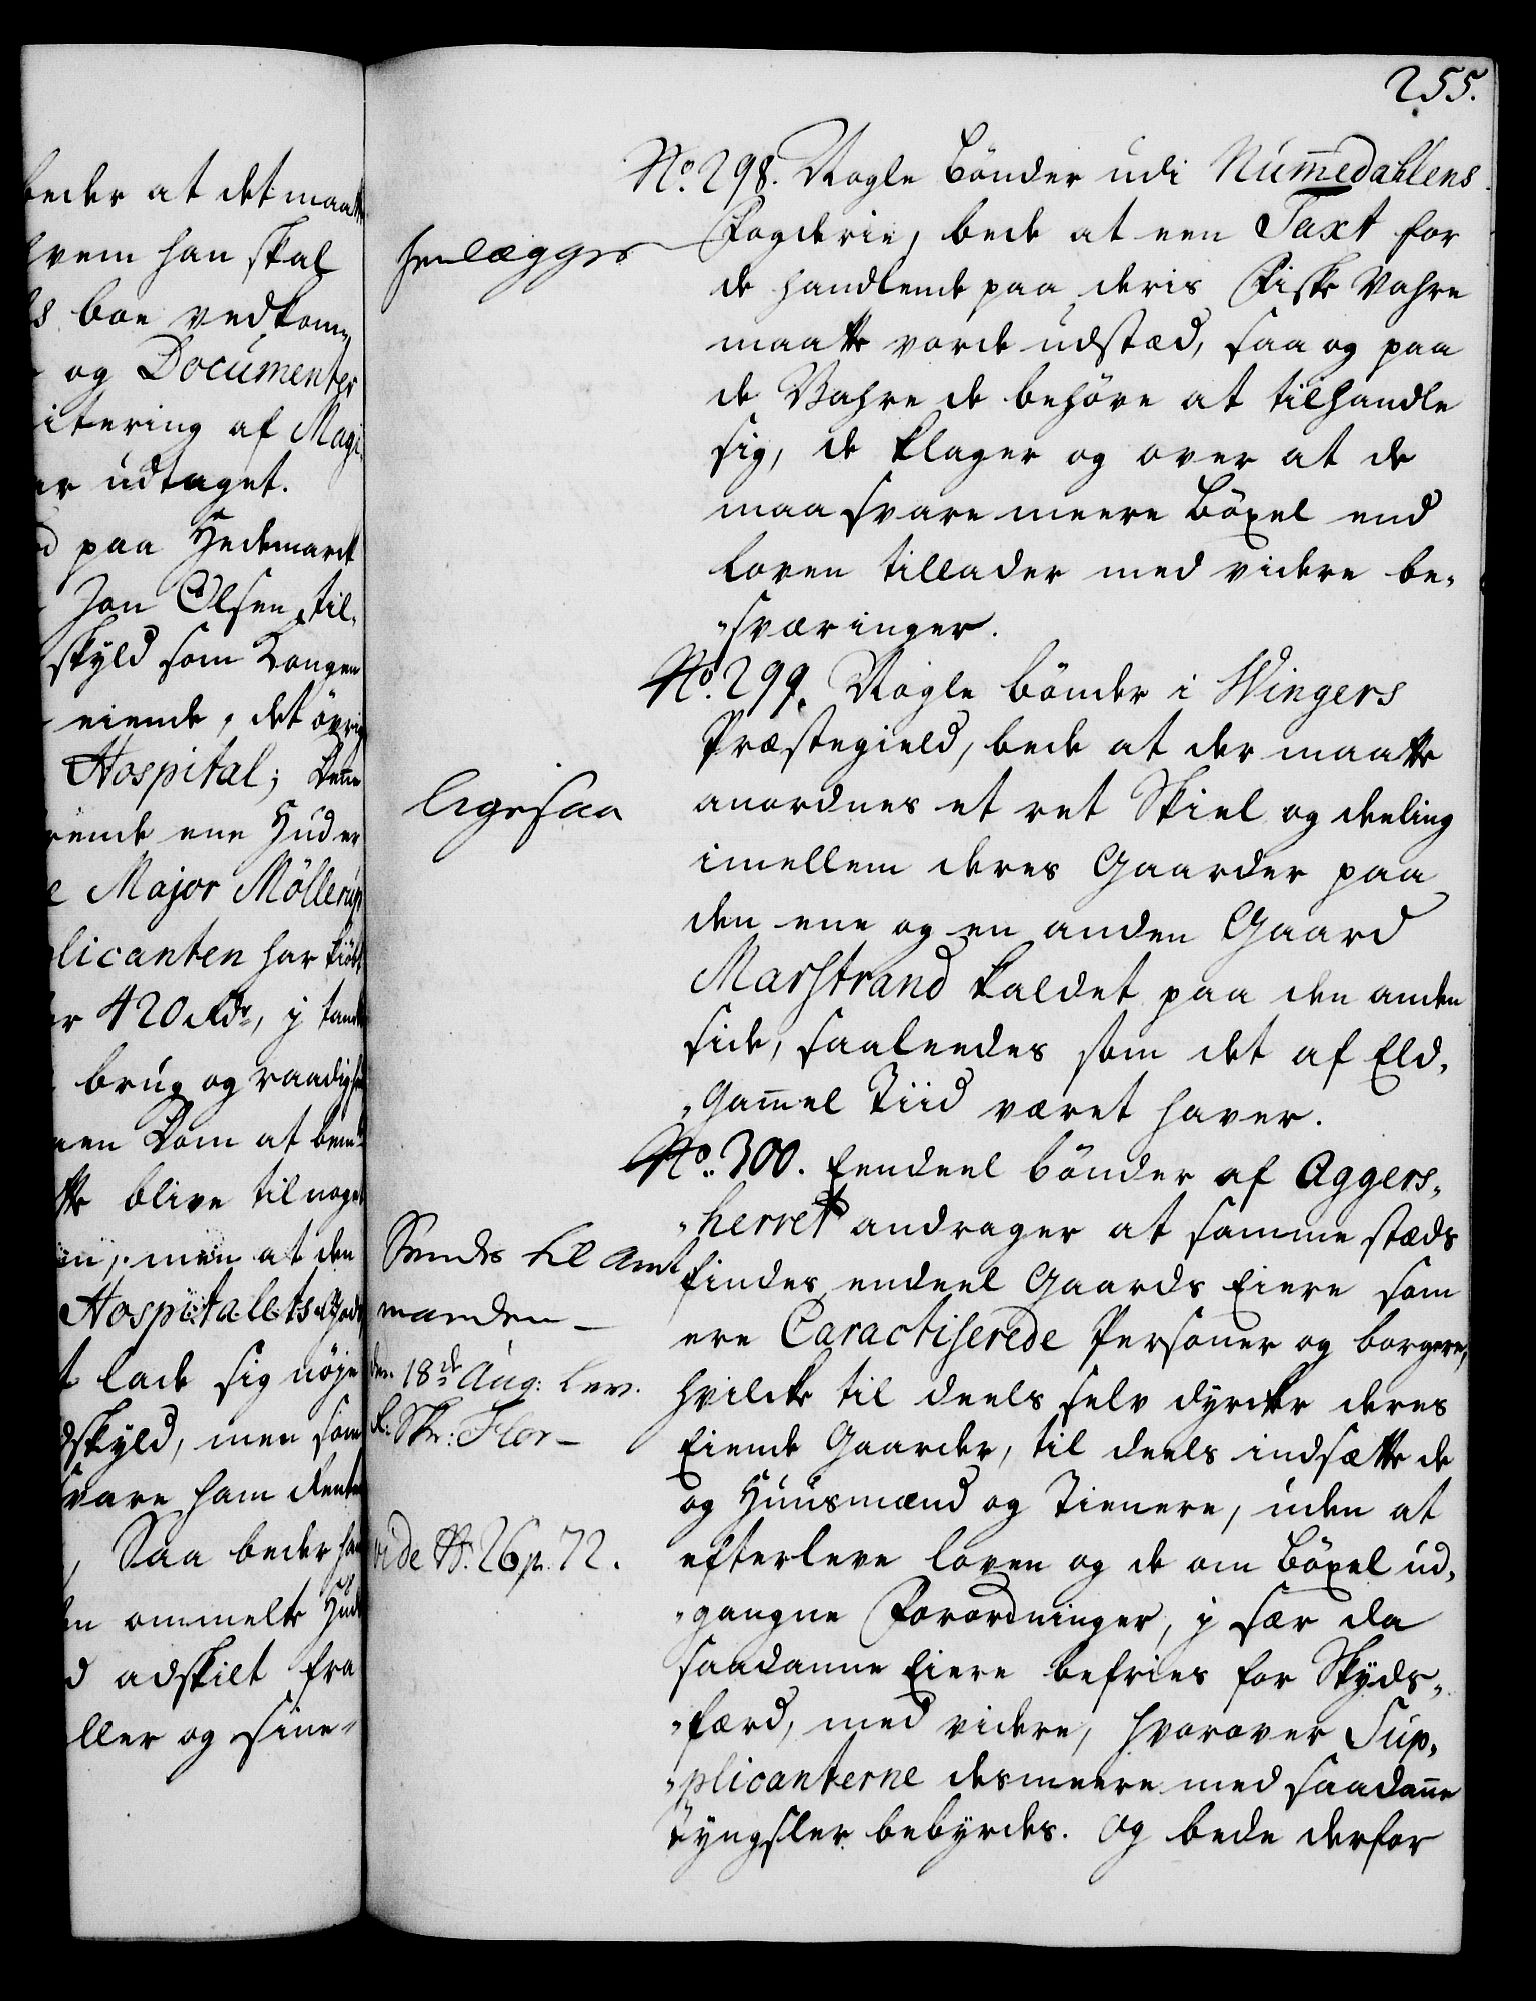 255.
beder at det maatte
hvem han skal
s boe vedkom„
og Documenter
itering af Magi„
er udtaget.
paa Hedemarck
Jon Olsen til„
skyld som Kongen
eiende, det övrig
Hospital; Denne
rende ene Hud er
Major Möllerup
plicanten har kiöbt
420 Rdr, j
brug og raadighed
en Dom at
blive til noget
, men at den
Hospitalets Gods
t lade sig nöje
dskyld, men som
svare ham
, Saa beder han
en ommelte Hud
d adskilt fra
ller og sine„
No. 298. Nogle Bönder udi Nummedahlens
Fogderie, bede at een Taxt for
de handlende paa deris Fiske Vahre
maatte vorde udstæd, saa og paa
de Vahre de behöve at tilhandle
sig, de klager og over at de
maa svare meere Böxel end
Loven tillader med videre be„
„sværinger.
henlægges
No. 299. Nogle bönder i Wingers
Præstegield, bede at der maatte
anordnes et ret Skiel og deeling
imellem deres Gaarder paa
den ene og en anden Gaard
Marstrand kaldet paa den anden
side, saaleedes som det af Eld„
„gammel Tiid været haver.
ligesaa
No. 300. Eendeel bönder af Aggers„
„herret andrager at samme stæds
findes endeel Gaards Eiere som
ere Caractiserede Personer og borgere,
hvilcke til deels selv dyrcker deres
Eiende Gaarder, til deels indsætte de
og Huusmænd og Tienere, uden at
efterleve loven og de om Böxel ud„
„gangne Forordninger, j sær da
saadanne Eiere befries for Skyds„
„færd, med videre, hvorover Sup„
„plicanterne desmeere med saadanne
tyngsler bebyrdes. Og bede derfor
Sendes til Amt
manden—
den 18de Aug: Lev.
Skr: Flor—
vide N. 26 p. 72.